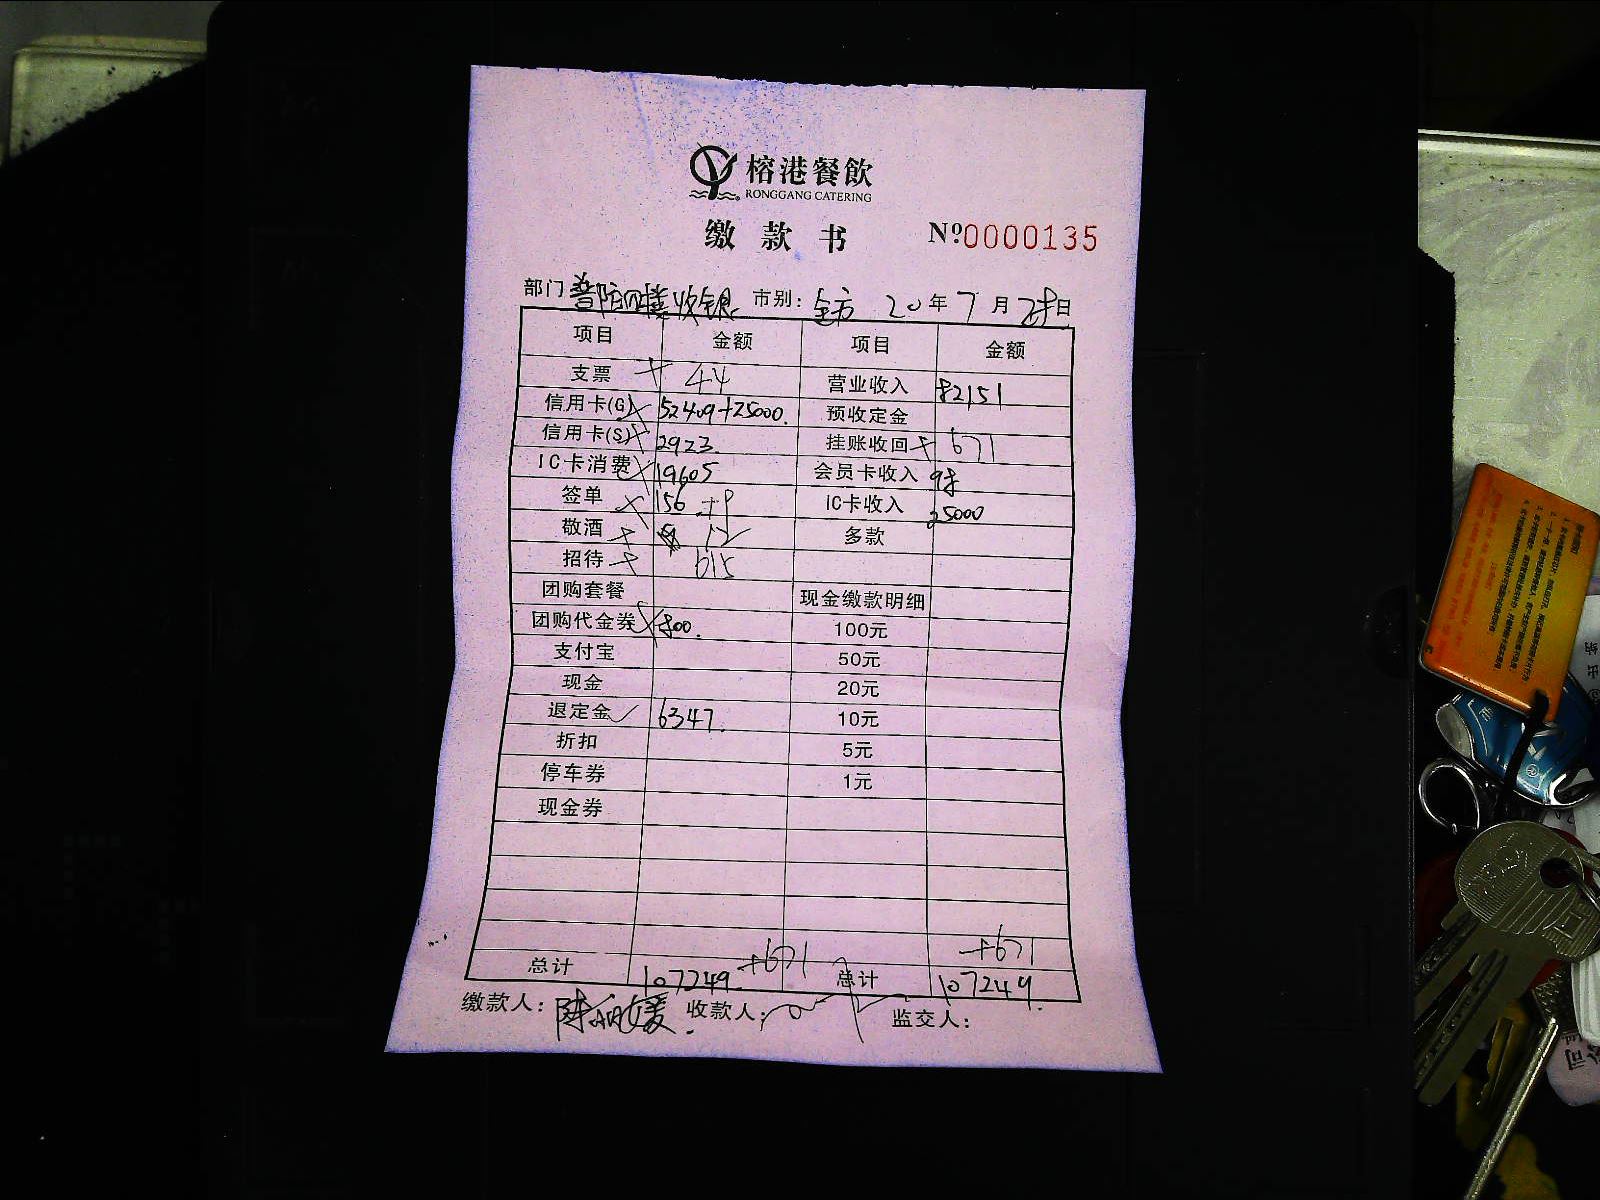 榕港餐飲
RONGGANG CATERING
缴款书 №0000135
部门 普陀四楼收银 市别: 全市 20年7月28日
项目 金额 项目 金额
支票 44 营业收入 82151
信用卡(G) 52409+25000. 预收定金
信用卡(S) 2923. 挂账收回 + 671
IC卡消费 19605 会员卡收入 98
签单 156 IC卡收入 25000
敬酒 12 多款
招待 615
团购套餐 现金缴款明细
团购代金券 800. 100元
支付宝 50元
现金 20元
退定金 ✓ 6347. 10元
折扣 5元
停车券 1元
现金券
+671 +671
总计 107249. 总计 107249.
缴款人: 收款人: 监交人: